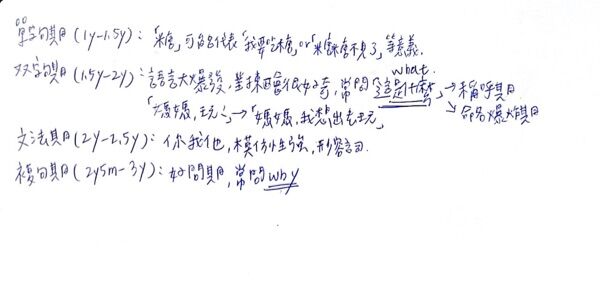 單字句期(1y-1.5y):「糖」可能代表「我要吃糖」or「糖糖不見了」等意義.
双字句期(1.5y-2y):語言大爆發,對東西會很好奇,常問「這是什麼」→稱呼期
what.
「媽媽,玩」→「媽媽,我想出去玩」 ↘命名爆炸期
文法期(2y-2.5y):你我他,模仿性強,形容詞.
複句期(2y5m-3y):好問期,常問why